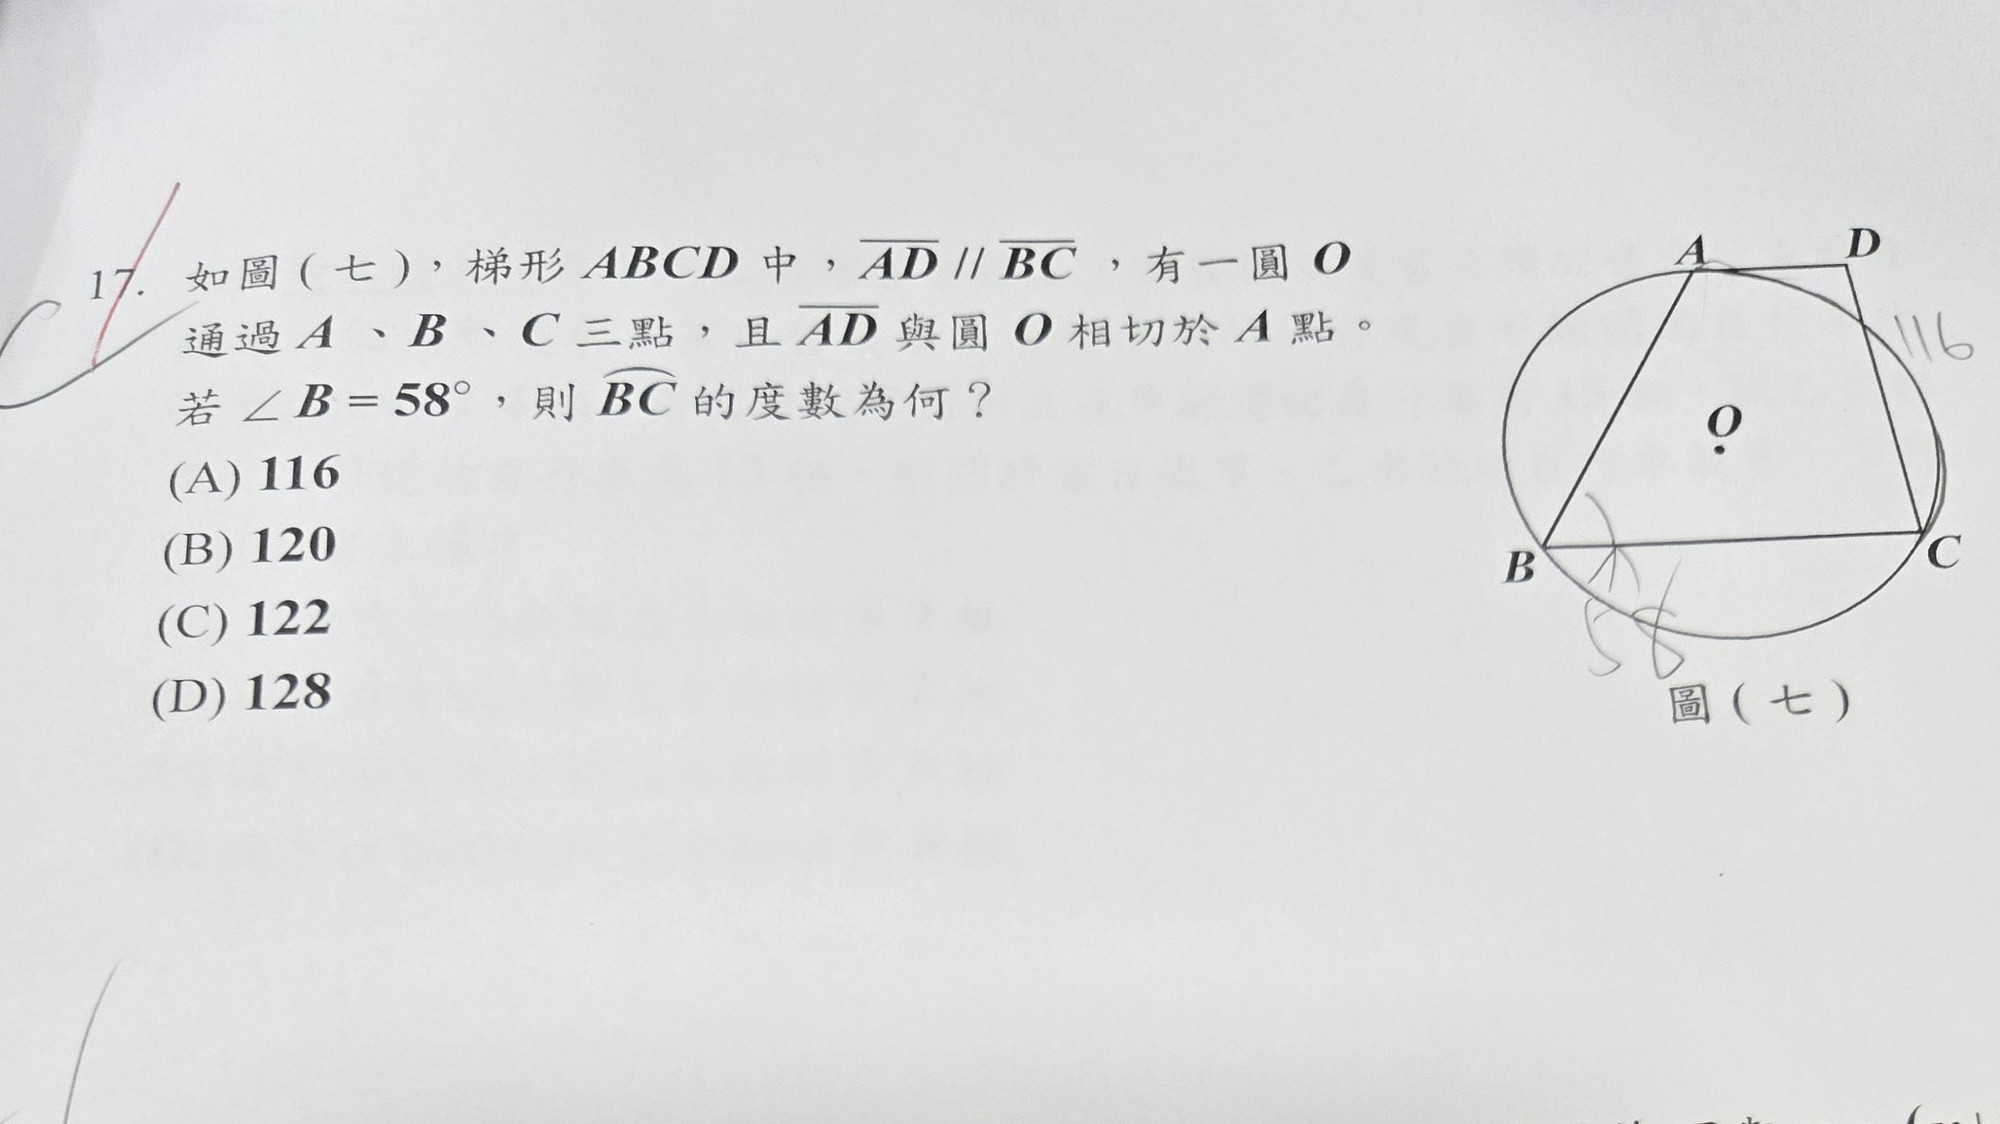 17. 如圖(七),梯形 ABCD 中,AD // BC ,有一圓 O
通過 A 、B 、C 三點,且 AD 與圓 O 相切於 A 點。
若 ∠B = 58°,則 BC 的度數為何?
(A) 116
(B) 120
(C) 122
(D) 128
A D
116
O
B C
58
圖(七)